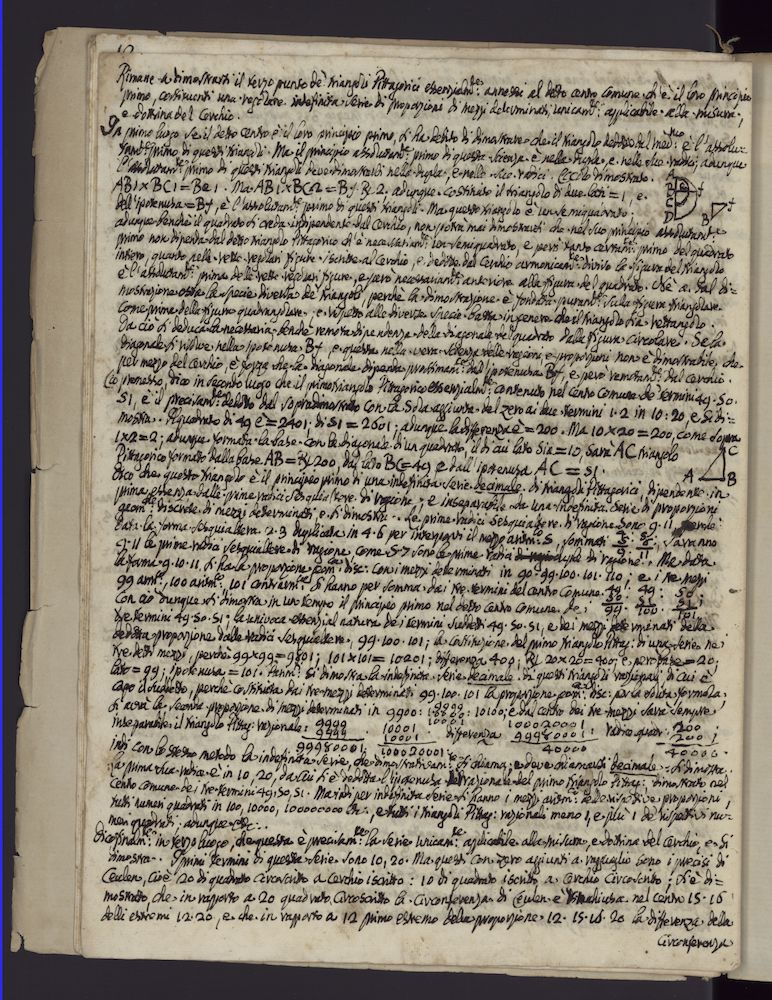 Rimane a dimostrarsi il terzo punto de' triangoli Pittagorici essenzialm.te annessi al detto centro comune, che è il loro principio
primo, costituenti una regolare indefinita Serie di proporzioni di mezzi determinati unicam.te applicabile alla misura,
e dottrina del Cerchio.
In primo luogo Se il detto centro è il loro principio primo, si ha debito di dimostrare che il triangolo dedotto del med.mo è l'assolu-
tam.te primo di questi triangoli. Ma il principio assolutam.te primo di questa Scienza è nella dupla, e nelle sue radici; adunque
l'assolutam.te primo di questi triangoli deve dimostrarsi nella dupla, e nelle sue radici. Ecco lo dimostrato.
AB1 × BC1 = Be1. Ma AB1 × BC2 = Bf R2. adunque costituito il triangolo di due lati = 1, e
dell'ipotenusa = Bf, è l'assolutam.te primo di questi triangoli. Ma questo triangolo è un semiquadrato;
adunque benchè il quadrato si creda indipendente dal Cerchio, non potrà mai dimostrarsi che nel suo principio assolutam.te
primo non dipenda dal detto triangolo Pittagorico ch'è necessariam.te un Semiquadrato, e però tanto certam.te primo del quadrato
intero, quanto nelle rette regolari figure iscritte al Cerchio, e dedotte dal Cerchio armonicam.te diviso la figura del triangolo
è l'assolutam.te prima delle rette regolari figure, e però necessariam.te anteriore alla figura del quadrato. Nè a tal di-
mostrazione osta la specie diversa de' triangoli, perchè la dimostrazione è fondata puram.te Sulla figura triangolare
come prima della figura quadrangolare; e rispetto alle diverse specie basta in genere che il triangolo sia rettangolo.
Da ciò si deduca la necessaria, benchè remota dipendenza della diagonale del quadrato dalla figura circolare. Se la
diagonale si risolve nella ipotenusa Bf, e questa nella vera Scienza delle ragioni, e proporzioni non è dimostrabile, che
per mezzo del cerchio, è forza che la diagonale dipenda prossimam.te dall'ipotenusa Bf, e però remotam.te dal Cerchio.
Ciò premesso, dico in secondo luogo che il primo triangolo Pittagorico essenzialm.te contenuto nel centro comune de' termini 49. 50.
51, è il precisam.te dedotto dal sopradimostrato con la sola aggiunta del zero ai due termini 1. 2 in 10: 20, e Si di-
mostra. Il quadrato di 49 è = 2401: di 51 = 2601; adunque la differenza è = 200. Ma 10 × 20 = 200, come Sopra
1 × 2 = 2; adunque formata la base con la diagonale di un quadrato, il di cui lato Sia = 10, sarà AC triangolo
Pittagorico formato dalla base AB = R 200, dal lato BC = 49, e dall'ipotenusa AC = 51.
A B C
Dico che questo triangolo è il principio primo di una indefinita Serie decimale di triangoli Pittagorici, dipendente in
prima essenza dalle prime radici Sesquialtere di ragione, e inseparabile da una indefinita Serie di proporzioni
geom.che discrete di mezzi determinati, e Si dimostra. Le prime radici Sesquialtere di ragione Sono 9. 11, perchè
data la forma Sesquialtera 2. 3 duplicata in 4. 6 per interporvi il mezzo aritm.co 5, sommati 4 5 : 5 6 : Saranno
9. 11 le prime radici Sesquialtere di ragione come 5. 7 sono le prime radici duple di ragione. Ma data
la forma 9. 10. 11, si ha la proporzione geom.ca disc. con i mezzi determinati in 90. 99. 100. 101. 110, e i tre mezzi
99 arm.co 100 aritm.co 101 contrarm.co si hanno per somma dai tre termini del centro Comune 49 50 : 49 51 : 50 51
99 100 101
Con ciò dunque si dimostra in un tempo il principio primo nel detto centro Comune de i
tre termini 49. 50. 51: la univoca essenzial natura de i termini Suddetti 49. 50. 51, e dei mezzi determinati della
dedotta proporzione dalle radici Sesquialtere, 99. 100. 101; la costituzione del primo triangolo Pittag: di una Serie ne'
tre detti mezzi, perchè 99 × 99 = 9801; 101 × 101 = 10201; differenza 400; R 20 × 20 = 400; e però base = 20;
lato = 99; Ipotenusa = 101. Item: si dimostra la indefinita Serie decimale di questi triangoli razionali, di cui è
Capo il Suddetto, perchè costituita dai tre mezzi determinati 99. 100. 101 la proporzione geom: disc: per la dovuta formola,
si avrà la seconda proporzione di mezzi determinati in 9900: 9999 : 10000 : 10001 : 10100; e dal centro dei tre mezzi Sarà Sempre
inseparabile il triangolo Pittag: razionale: 9999 9999 10001 10001 differenza 100020001 99980001 radice quad: 200 200
99980001; 100020001 40000 40000
indi con lo stesso metodo la indefinita Serie, che dimostrativam.te si chiama, e deve chiamarsi decimale. Si dimostra.
La prima sua radice è in 10, 20, da cui si è dedotta l'ipotenusa irrazionale del primo triangolo Pittag: dimostrato nel
Centro comune de i tre termini 49, 50, 51. Ma indi per indefinita serie si hanno i mezzi aritm.ci delle rispettive proporzioni,
tutti numeri quadrati in 100, 10000, 100000000 &c., e tutti i triangoli Pittag: razionali meno 1, e più 1 de' rispettivi nu-
meri quadrati; adunque &c.
Dico finalm.te in terzo luogo, che questa è precisam.te la Serie unicam.te applicabile alla misura, e dottrina del Cerchio, e Si
dimostra. I primi termini di questa Serie sono 10, 20. Ma questi con zero aggiunti a ragguaglio sono i precisi di
Ceulen, cioè 20 di quadrato circoscritto a Cerchio iscritto: 10 di quadrato iscritto a Cerchio Circoscritto; Si è di-
mostrato, che in rapporto a 20 quadrato Circoscritto la Circonferenza di Ceulen è racchiusa nel centro 15. 16
delli estremi 12. 20, e che in rapporto a 12 primo estremo della proporzione 12. 15. 16. 20 la differenza della
Circonferenza